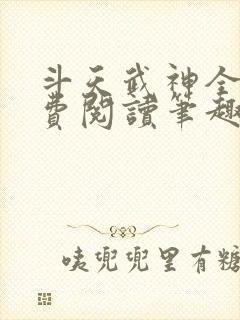 斗天武神全
費閱讀筆趣
咦兜兜里有糖